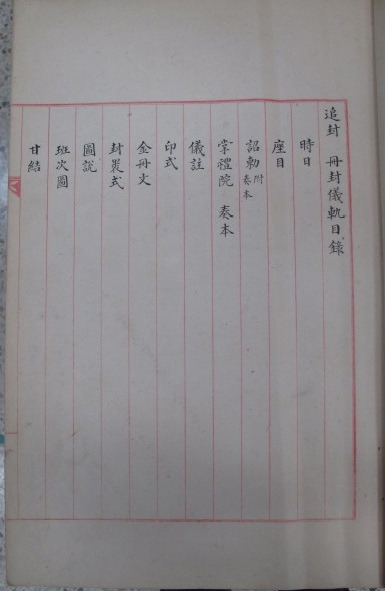 追封 冊封儀軌目錄
時日
座目
詔勅附奏本
掌禮院 奏本
儀註
印式
金冊文
封裹式
圖說
班次圖
甘結